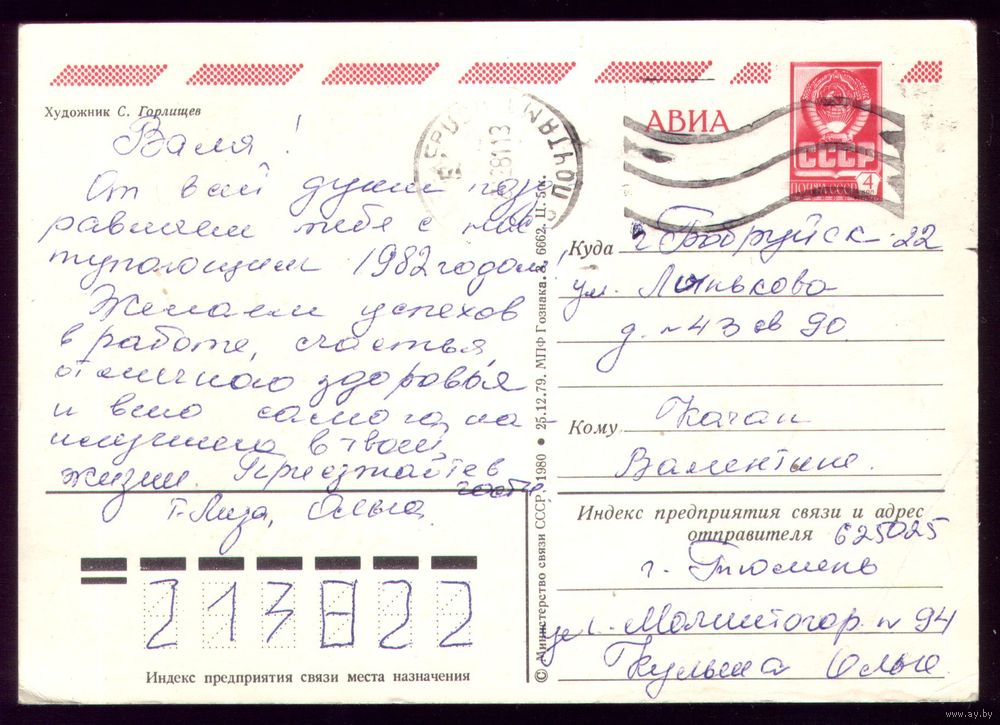 Художник С. Горлищев
АВИА
СССР
ПОЧТА СССР
4
Валя!
От всей души позд
равляем тебя с нас
тупающим 1982 годом!
Желаем успехов
в работе, счастья,
отличного здоровья
и всего самого на-
илучшего в твоей
жизни. Приезжайте в
гости.
т. Лиза, Ольга.
Куда г. Бобруйск-22
ул. Лынькова
д. N 43 кв 90
Кому Каган
Валентине.
Индекс предприятия связи и адрес
отправителя 625025
г. Тюмень
ул. Магнитогор. N 94
Ольга
213822
Индекс предприятия связи места назначения
© Министерство связи СССР. 1980 • 25.12.79. МПФ Гознака. З. 6662. Ц. 5 к.
www.ay.by